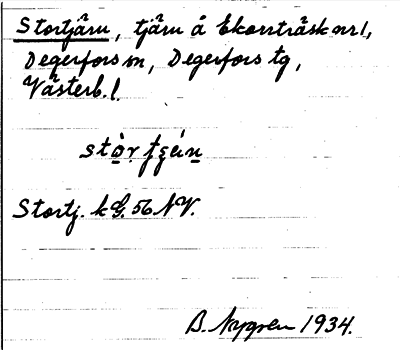 Stortjärn, tjärn å Ekorrträsk nr 1,
Degerfors sn, Degerfors tg,
Västerb. l.
Stortj. k G. 56 NV.
B. Nygren 1934.